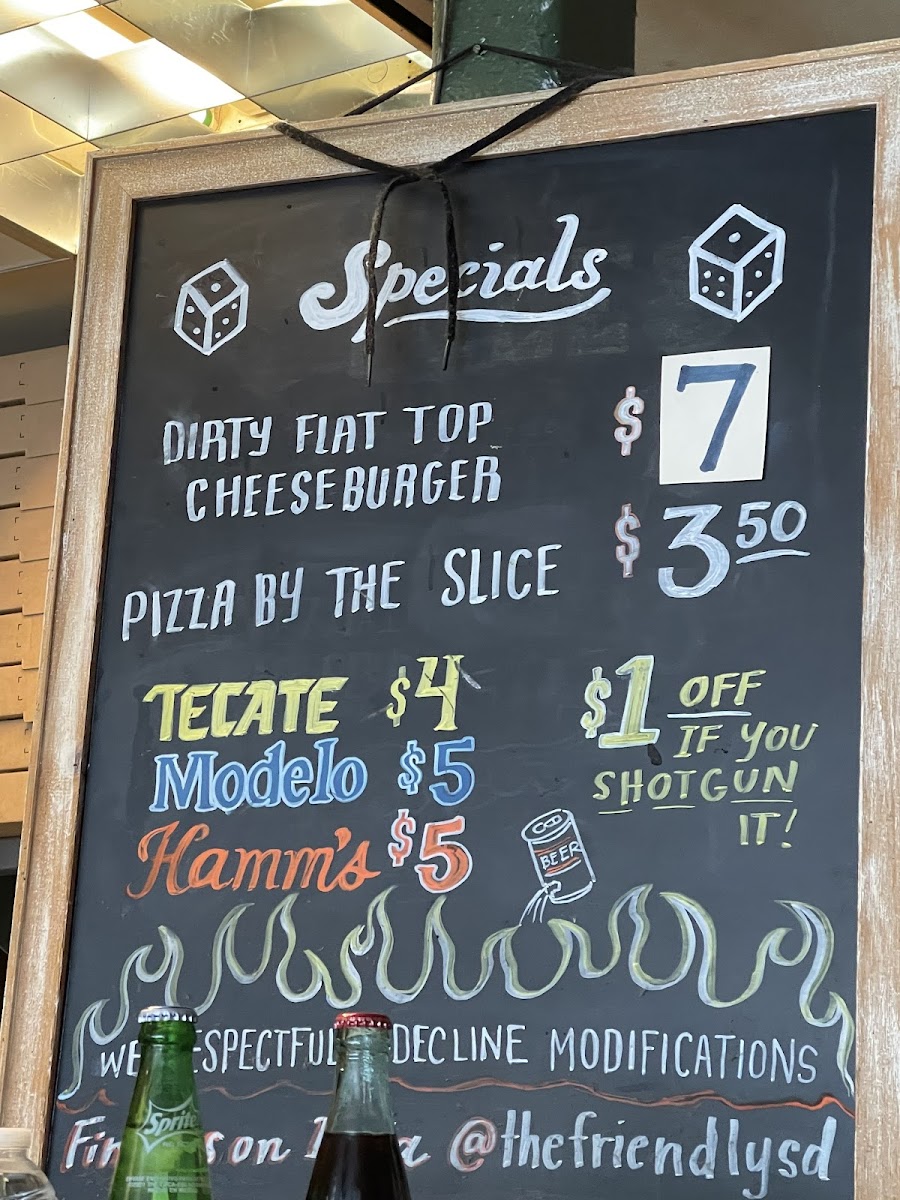 Specials
DIRTY FLAT TOP
CHEESEBURGER
$7
PIZZA BY THE SLICE
$3.50
TECATE $4
Modelo $5
Hamm's $5
$1 OFF
IF YOU
SHOTGUN
IT!
BEER
WE DECLINE MODIFICATIONS
on @thefriendlysd
Sprite